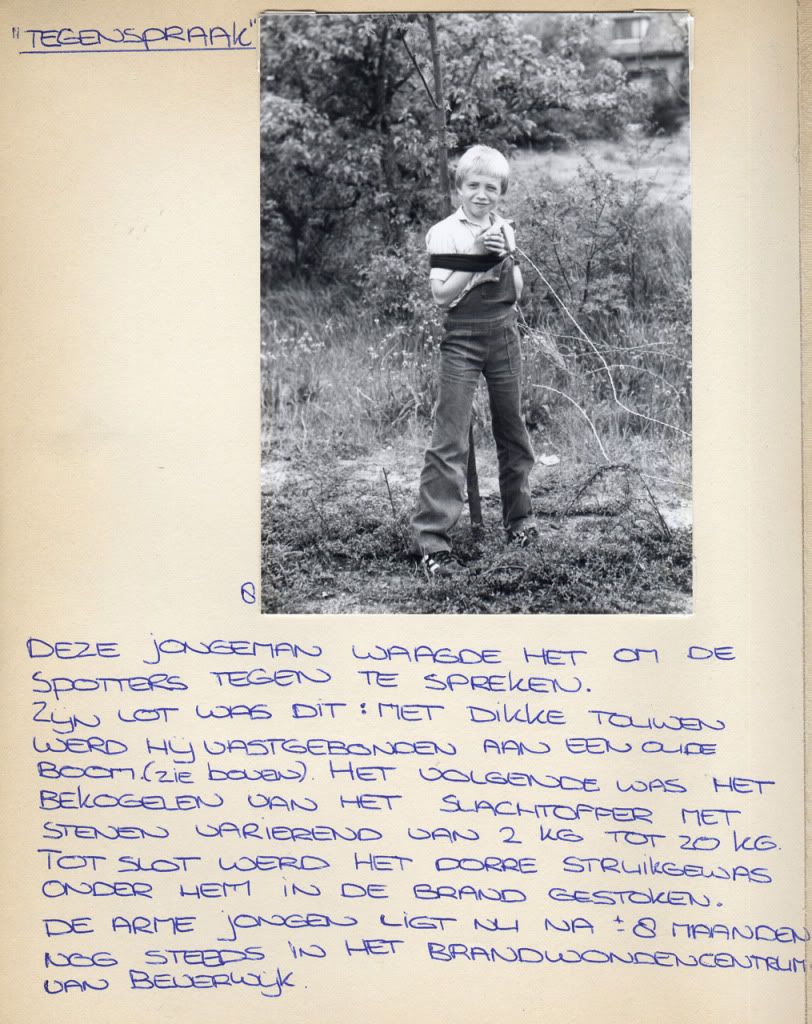 "TEGENSPRAAK"
8
DEZE JONGEMAN WAAGDE HET OM DE
SPOTTERS TEGEN TE SPREKEN.
ZIJN LOT WAS DIT : MET DIKKE TOUWEN
WERD HIJ VASTGEBONDEN AAN EEN OUDE
BOOM.(zie boven). HET VOLGENDE WAS HET
BEKOGELEN VAN HET SLACHTOFFER MET
STENEN VARIEREND VAN 2 KG TOT 20 KG.
TOT SLOT WERD HET DORRE STRUIKGEWAS
ONDER HEM IN DE BRAND GESTOKEN.
DE ARME JONGEN LIGT NU NA ± 8 MAANDEN
NOG STEEDS IN HET BRANDWONDENCENTRUM
VAN BEVERWIJK.